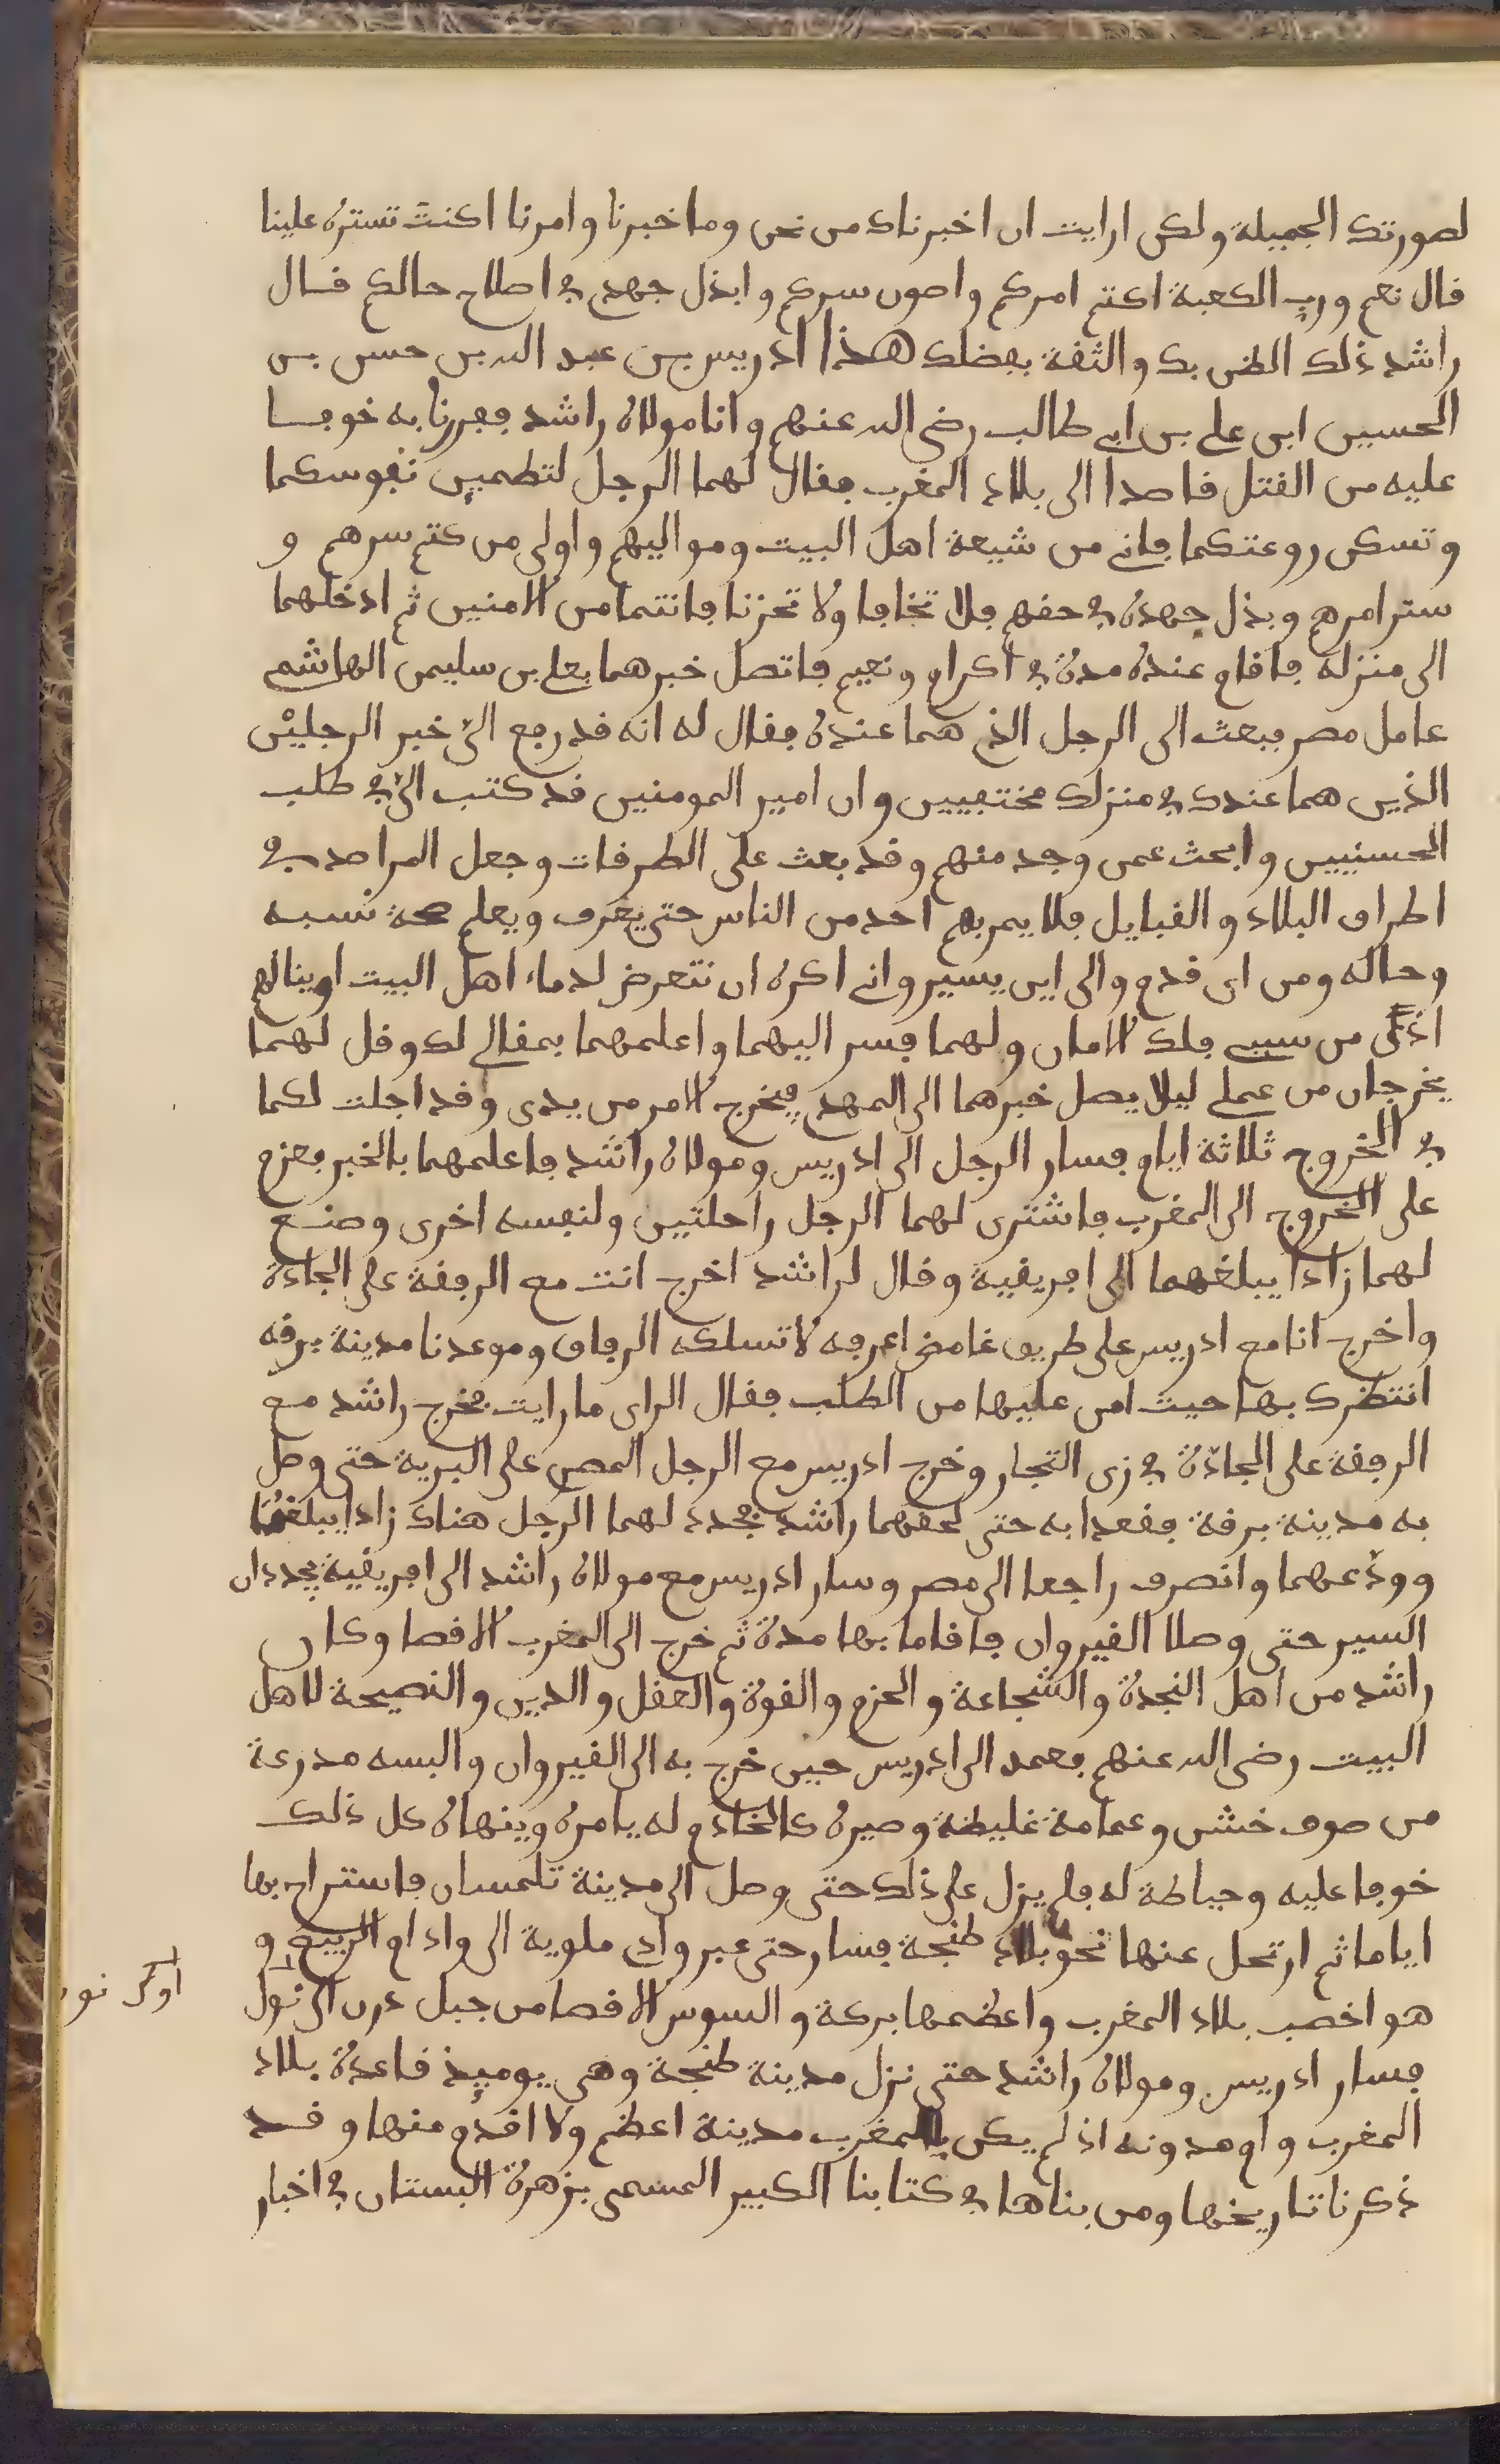 لصورتك الجميلة ولكن ارايت ان اخبرناك من نحن وما خبرنا وامرنا اكنت تستره علينا
قال نعم ورب الكعبة اكتم امركم واصون سركم وابذل جهدي في اصلاح حالكم قال
راشد ذلك الظن بك والثقة بفضلك هذا ادريس بن عبد الله بن حسن بن
الحسين ابن علي بن ابي طالب رضي الله عنهم وانا مولاه راشد فررنا به خوفا
عليه من القتل قاصدا الى بلاد المغرب فقال لهما الرجل لتطمين نفوسكما
وتسكن روعتكما فاني من شيعة اهل البيت ومواليهم واولى من كتم سرهم و
ستر امرهم وبذل جهده في حقهم فلا تخافا ولا تحزنا فانتما من الامنين ثم ادخلهما
الى منزله فاقام عنده مدة في اكرام ونعيم فاتصل خبرهما بعلي بن سليمن الهاشمي
عامل مصر فبعث الى الرجل الذي هما عنده فقال له انه قد رفع الي خبر الرجلين
الذين هما عندك في منزلك مختفيين وان امير المومنين قد كتب الي في طلب
الحسنيين وابحث عمن وجد منهم وقد بعث على الطرقات وجعل المراصد في
اطراف البلاد والقبايل فلا يمر بهم احد من الناس حتى يعرف ويعلم صحة نسبه
وحاله ومن اى قدم والى اين يسير واني اكره ان نتعرض لدماء اهل البيت او ينالهم
اذى من سببي فلك الامان ولهما فسر اليهما واعلمهما بمقالي لك وقل لهما
يخرجان من عملي ليلا يصل خبرهما الى المهدي فيخرج الامر من يدى وقد اجلت لكما
في الخروج ثلاثة ايام فسار الرجل الى ادريس ومولاه راشد فاعلمهما بالخبر فعزم
على الخروج الى المغرب فاشترى لهما الرجل راحلتين ولنفسه اخرى وصنع
لهما زادا يبلغهما الى افريقية وقال لراشد اخرج انت مع الرفقة على الجادة
واخرج انا مع ادريس على طريق غامض اعرفه لا تسلكه الرفاق وموعدنا مدينة برقه
انتظرك بها حيث امن عليها من الطلب فقال الراى ما رايت فخرج راشد مع
الرفقة على الجادة في زى التجار وخرج ادريس مع الرجل المصري على البرية حتى وصل
به مدينة برقة فقعدا به حتى لحقهما راشد فجدد لهما الرجل هناك زادا يبلغهما
وودعهما وانصرف راجعا الى مصر وسار ادريس مع مولاه راشد الى افريقية يجددان
السير حتى وصلا القيروان فاقاما بها مدة ثم خرج الى المغرب الاقصا وكان
راشد من اهل النجدة والشجاعة والحزم والقوة والعقل والدين والنصيحة لاهل
البيت رضى الله عنهم فعمد الى ادريس حين خرج به الى القيروان والبسه مدرعة
من صوف خشن وعمامة غليظة وصيره كالخادم له يامره وينهاه كل ذلك
خوفا عليه وحياطة له فلم يزل على ذلك حتى وصل الى مدينة تلمسان فاستراح بها
اياما ثم ارتحل عنها نحو بلاد طنجة فسار حتى عبر وادي ملوية الى واد ام الربيع و
هو اخصب بلاد المغرب واعظمها بركة والسوس الاقصا من جبل درن الى نول
فسار ادريس ومولاه راشد حتى نزل مدينة طنجة وهى يوميذ قاعدة بلاد
المغرب وام مدونه اذ لم يكن بالمغرب مدينة اعظم ولا اقدم منها وقد
ذكرنا تاريخها ومن بناها في كتابنا الكبير المسمى بزهرة البستان في اخبار